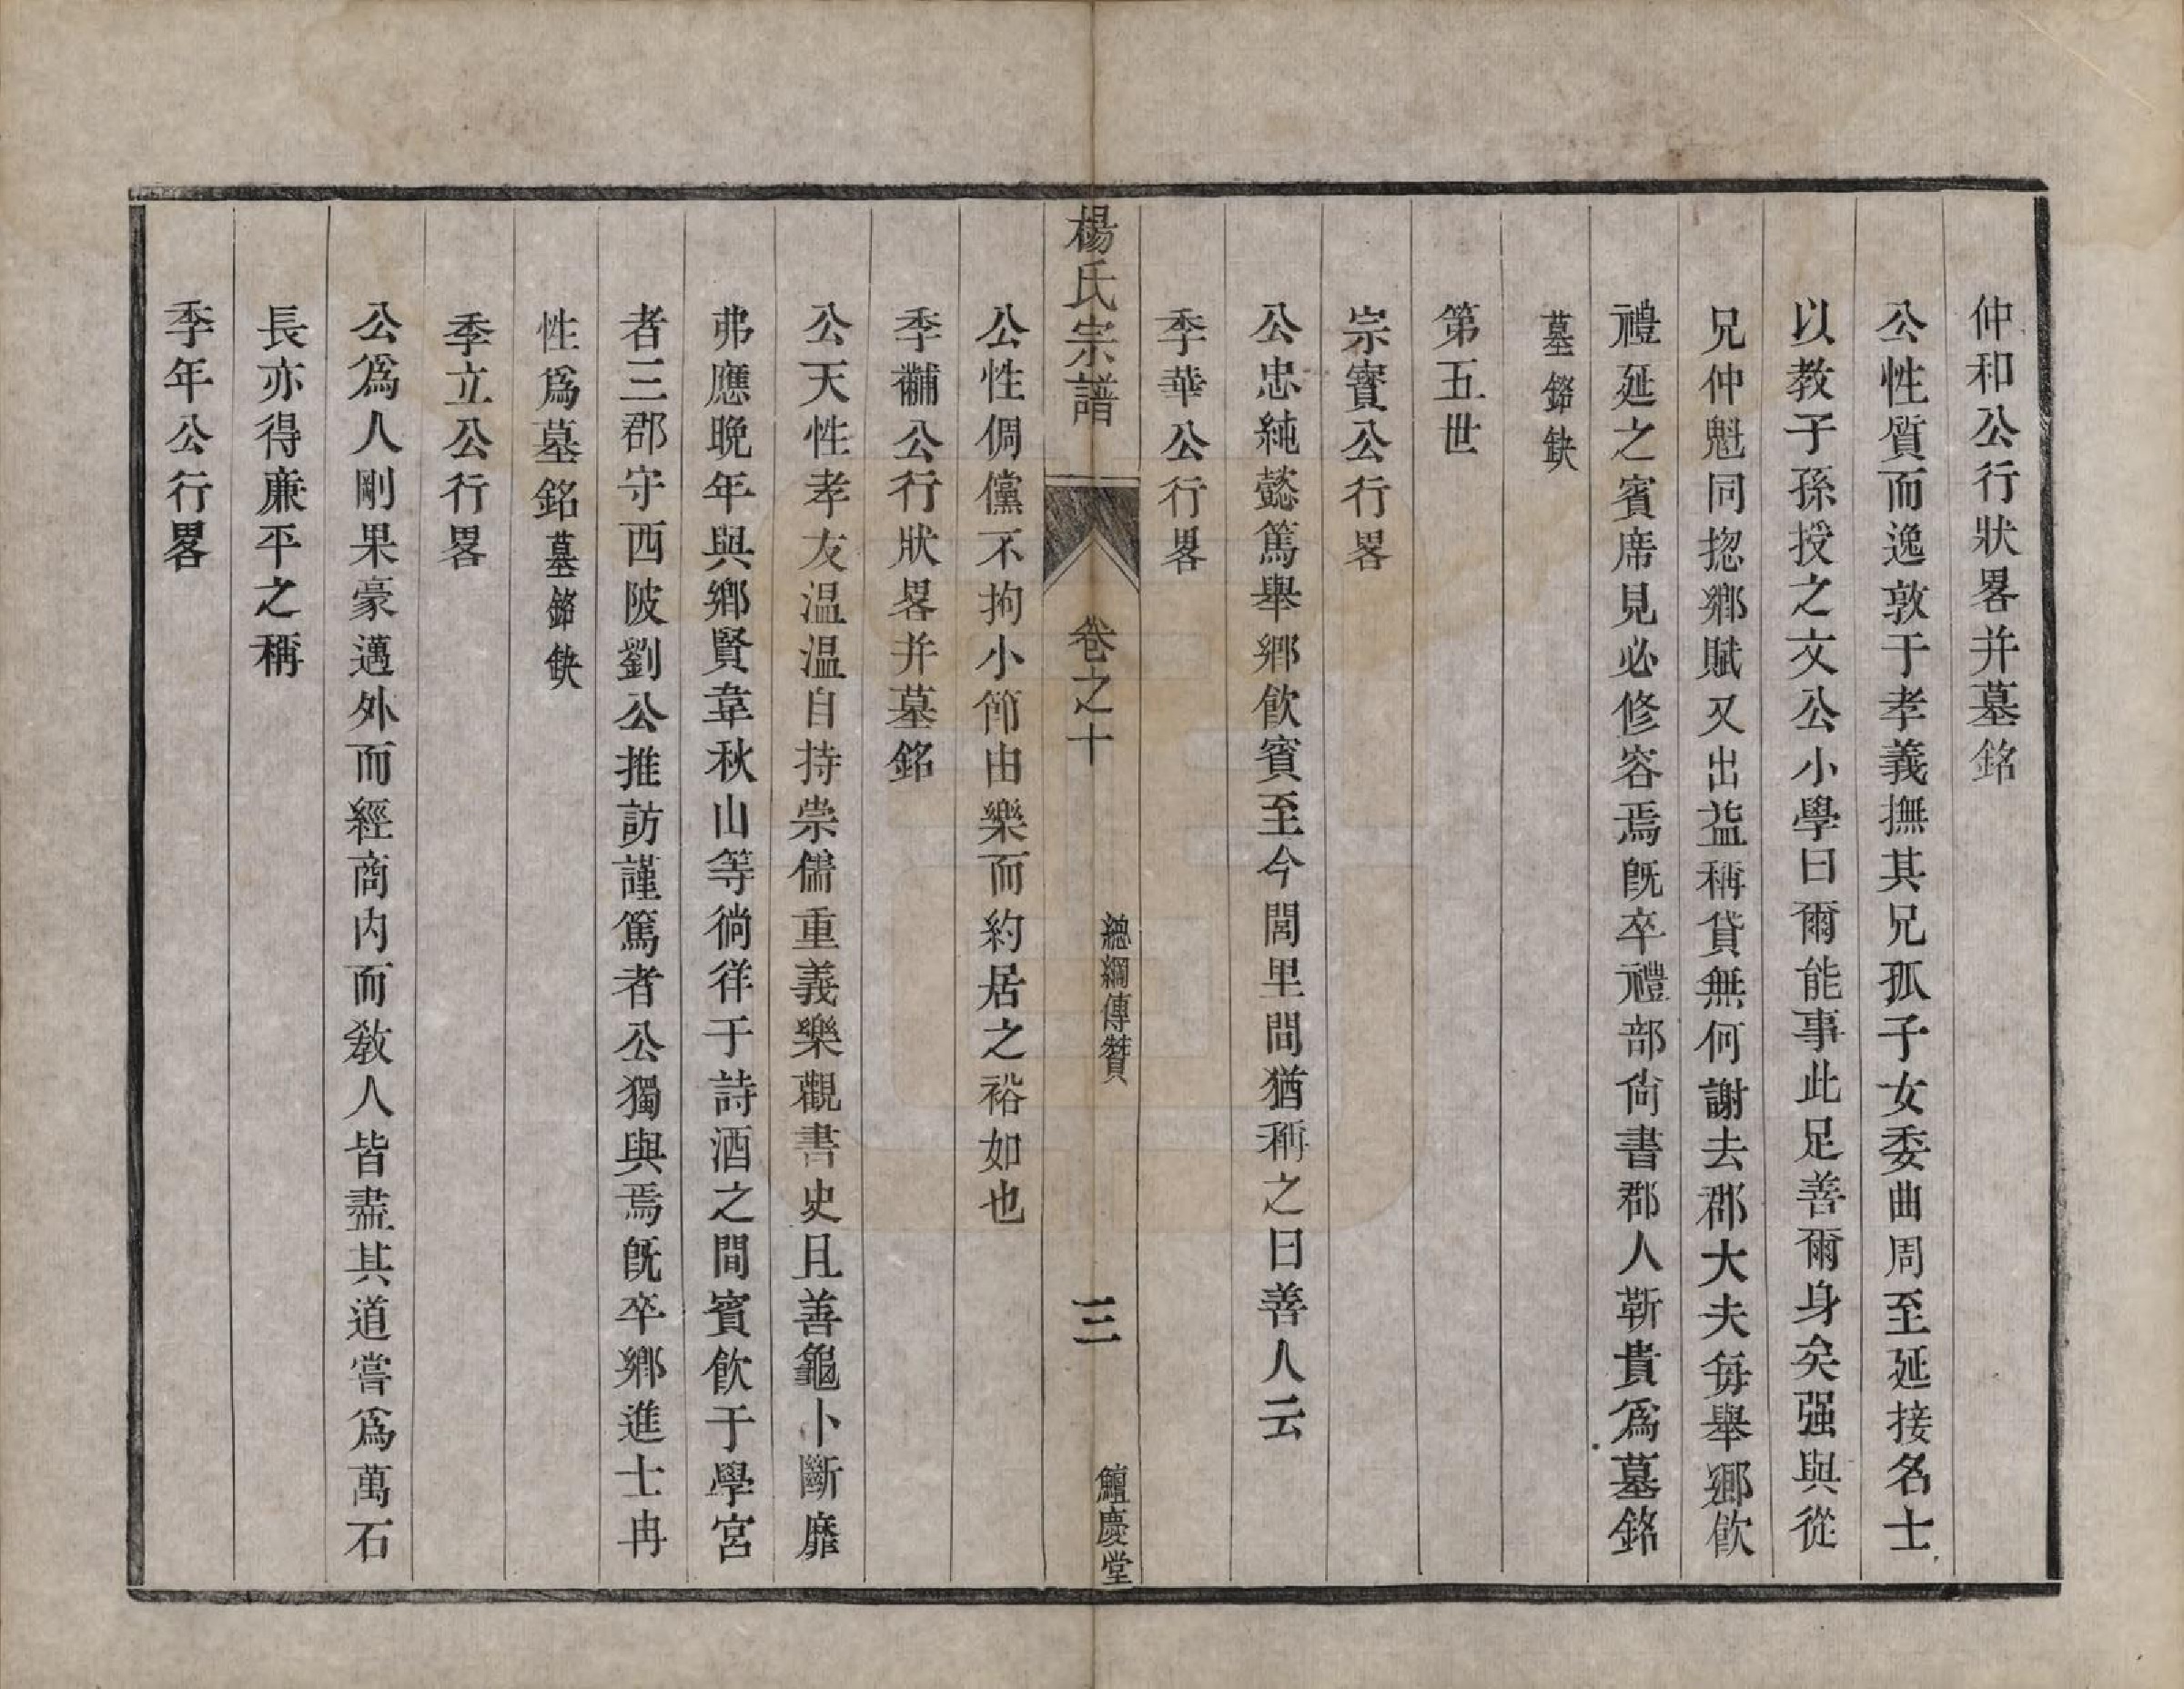 仲和公行狀畧并墓銘
公性質而逸敦于孝義撫其兄孤子女委曲周至延接名士
以教子孫授之文公小學曰爾能事此足善爾身矣强與從
兄仲魁同揔鄉賦又出益稱貸無何謝去郡大夫每舉鄉飮
禮延之賓席見必修容焉旣卒禮部尙書郡人靳貴爲墓銘
墓銘缺
第五世
宗實公行畧
公忠純懿篤舉鄉飮賓至今閭里間猶稱之曰善人云
季華公行畧
楊氏宗譜
卷之十
總綱傳贊
三
鱣慶堂
公性倜儻不拘小節由樂而約居之裕如也
季黼公行狀畧并墓銘
公天性孝友温温自持崇儒重義樂觀書史且善龜卜斷靡
弗應晚年與鄉賢韋秋山等徜徉于詩酒之間賓飮于學宮
者三郡守西陂劉公推訪謹篤者公獨與焉旣卒鄉進士冉
性爲墓銘墓銘缺
季立公行畧
公爲人剛果豪邁外而經商内而敎人皆盡其道嘗爲萬石
長亦得亷平之稱
季年公行畧